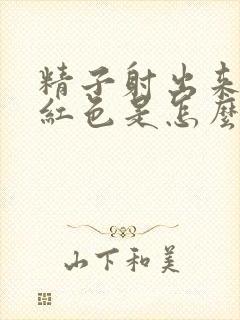 精子射出来
红色是怎麼
山下和美